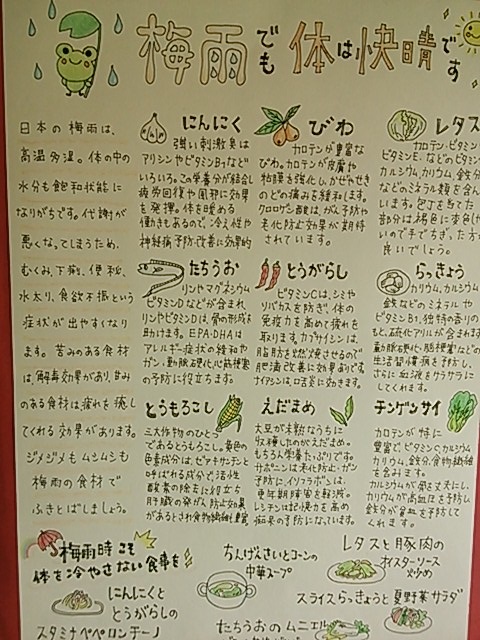 梅雨でも体は快晴です
日本の梅雨は、
高温多湿。体の中の
水分も飽和状態に
なりがちです。代謝が
悪くなってしまうため、
むくみ、下痢、便秘、
水太り、食欲不振という
症状が出やすくなり
ます。苦みのある食材
は解毒効果があり、甘み
のある食材は疲れを癒し
てくれる効果があります。
ジメジメもムシムシも
梅雨の食材で
ふきとばしましょう。
にんにく
強い刺激臭は
アリシンやビタミンB1など
いろいろ。この栄養分が結合し
疲労回復や風邪に効果
を発揮。体を暖める
働きもあるので、冷え性や
神経病予防・改善に効果的
びわ
カロテンが豊富な
びわ。カロテンが皮膚や
粘膜を強化し、かぜやせき
のどの痛みを緩和します。
クロロゲン酸は、がん予防や
老化防止効果が期待
されています。
レタス
カロテン・ビタミン
ビタミンE、などのビタミン
カルシウム、カリウム、鉄分
などのミネラル類を含ん
います。包丁を当てた
部分は褐色に変色し
いので手でちぎった方
良いでしょう。
たちうお
リンやマグネシウム
ビタミンDなどが含まれ
リンやビタミンDは、骨の形成を
助けます。EPA・DHAは
アレルギー症状の緩和や
ガン、動脈硬化、心筋梗塞
の予防に役立ちます。
とうがらし
ビタミンCは、シミや
ソバカスを防ぎ、体の
免疫力を高めて疲れを
取ります。カプサイシンは
脂肪を燃焼させるので
肥満改善に効果あり。
ナイアシンは口舌炎に効きます。
らっきょう
カリウム、カルシウム
鉄などのミネラルや
ビタミンB1、独特の香りの
もと、硫化アリルが含まれま
動脈硬化、脳梗塞などの
生活習慣病を予防し、
さらに血液をサラサラに
してくれます。
とうもろこし
三大作物のひとつ
であるとうもろこし。黄色の
色素成分は、ゼアキサンチンと
呼ばれる成分で活性
酸素の除去に役立ち
肝臓の発がん防止効果
があるとされ食物繊維も豊富
えだまめ
大豆が未熟なうちに
収穫したのがえだまめ。
もちろん栄養たっぷりです。
サポニンは老化防止・ガン
予防に、イソフラボンは、
更年期障害を軽減。
レシチンは記憶力を高め
痴呆の予防になっています。
チンゲンサイ
カロテンが特に
豊富で、ビタミンC、カルシウム
カリウム、鉄分、食物繊維
を含みます。
カルシウムが骨を丈夫にし、
カリウムが高血圧を予防し
鉄分が貧血を予防して
くれます。
梅雨時こそ
体を冷やさない食事を
にんにくと
とうがらしの
スタミナペペロンチーノ
ちんげんさいとコーンの
中華スープ
たちうおのムニエル
レタスと豚肉の
オイスターソース
炒め
スライスらっきょうと夏野菜サラダ